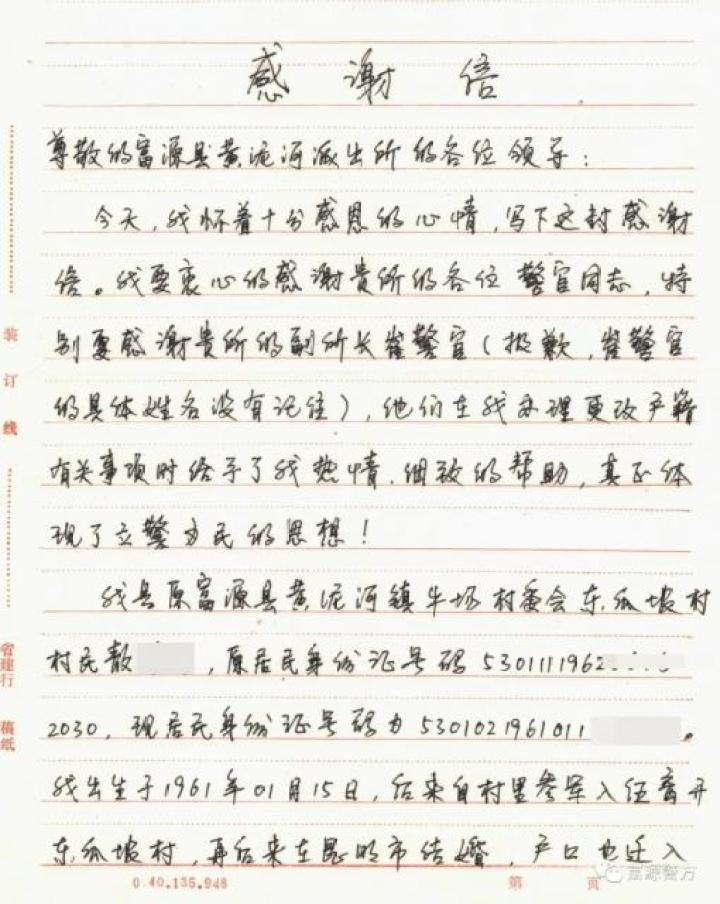 感谢信
尊敬的富源县黄泥河派出所的各位领导：
今天，我怀着十分感恩的心情，写下这封感谢
信。我要衷心的感谢贵所的各位警官同志，特
别要感谢贵所的副所长崔警官（抱歉，崔警官
的具体姓名没有记住），他们在我办理更改户籍
有关事项时给予了我热情、细致的帮助，真正体
现了立警为民的思想！
我是原富源县黄泥河镇牛场村委会东瓜坡村
村民敖，原居民身份证号码530111196
2030，现居民身份证号码为5301021961011。
我出生于1961年01月15日，后来自村里参军入伍离开
东瓜坡村，再后来在昆明市结婚，户口也迁入
装订线
省建行 稿纸
0.40.135.948
第 页
富源警方